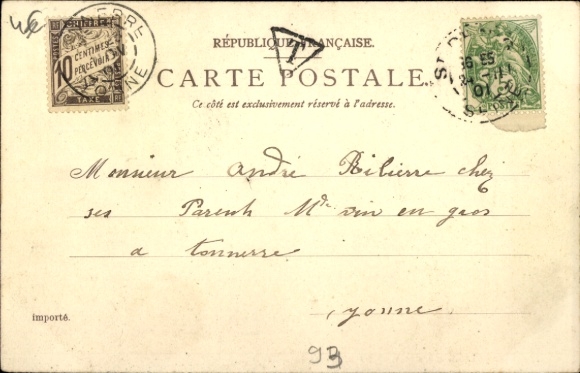 10
CENTIMES
À PERCEVOIR
TAXE
T
RÉPUBLIQUE FRANÇAISE.
CARTE POSTALE.
Ce côté est exclusivement réservé à l'adresse.
Monsieur André Ribierre chez
ses Parents Md vin en gros
a tonnerre
yonne
importé.
93